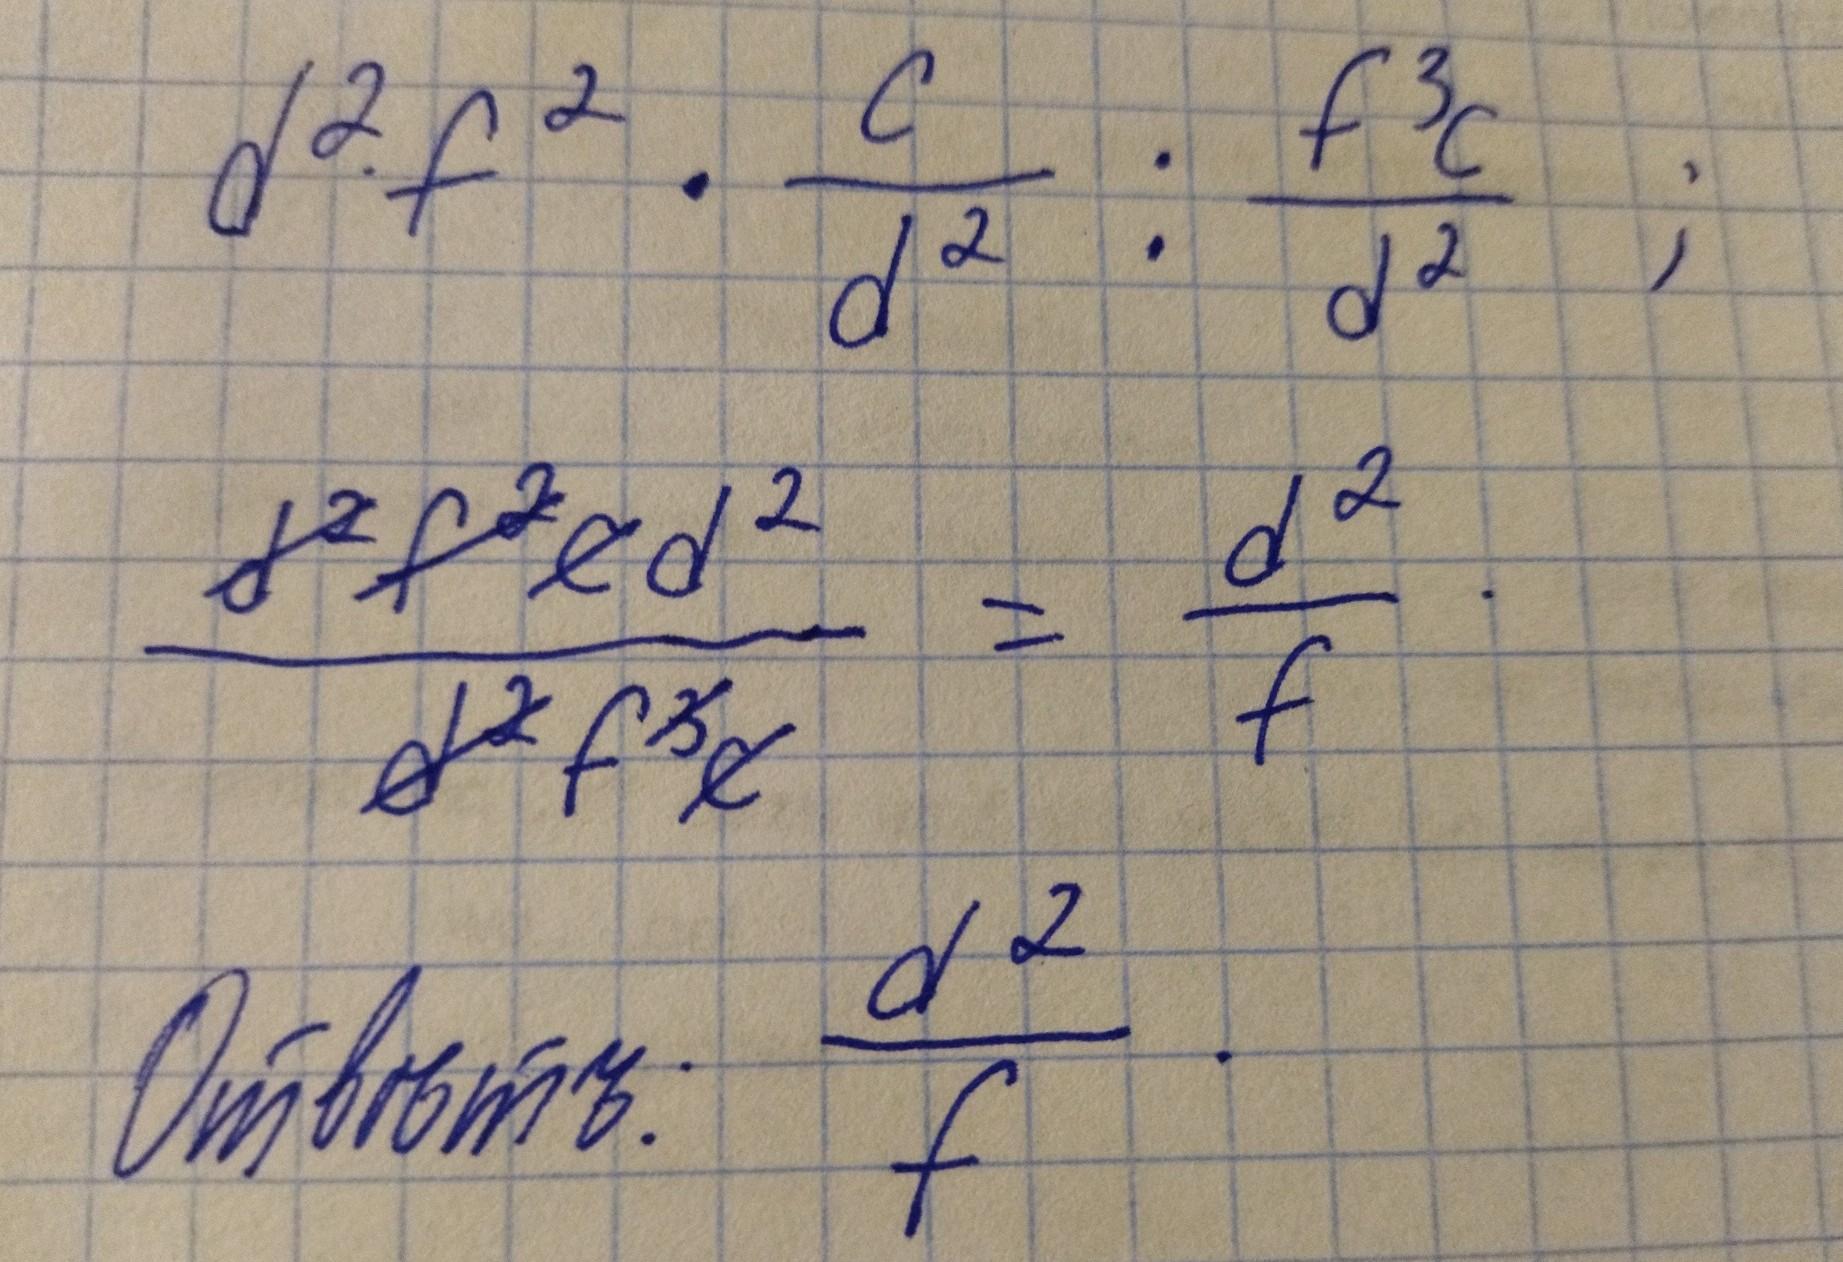 d² f² · c/d² : f³c/d² ;
d² f² c d² / d² f³ c = d²/f .
Отвѣтъ: d²/f .